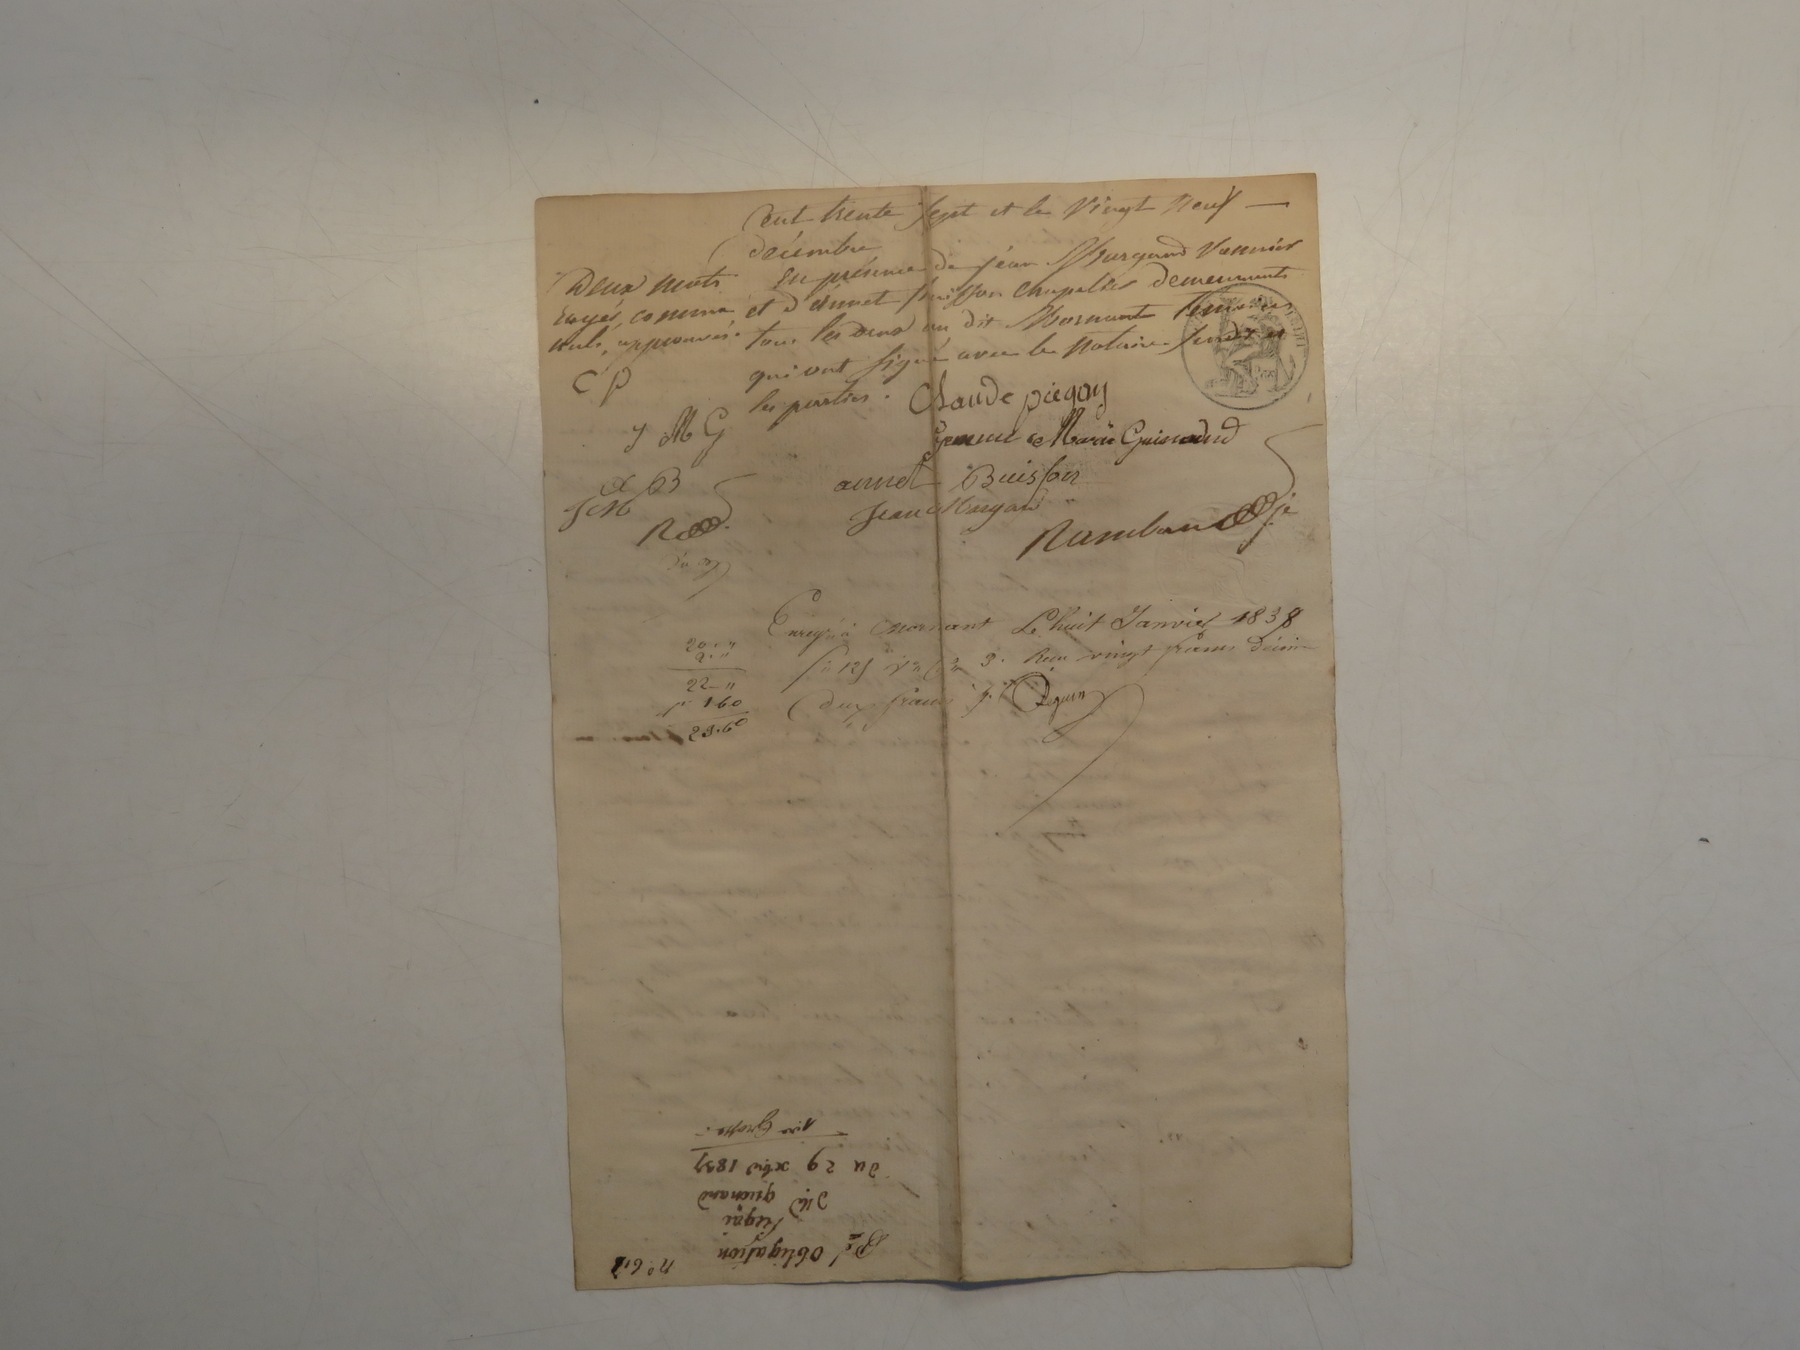 Cent trente sept et le vingt neuf —
décembre
Deux mots
rayés, comme
nuls, approuvés.
En présence de Jean Margand Vannier
et d'Annet Buisson chapelier demeurants
tous les deux au dit Mornant témoins
qui ont signé avec le notaire
les parties.
C P
Claude piegay
J M G
Jeanne Marie Guinand
A B
annet Buisson
J M
Jean Margand
R
Rambaud
Enregé à Mornant Le huit Janvier 1838
fo 125 Vo Reçu vingt francs décime
deux francs
20 "
2 "
22 "
1 60
23.60
no 61
Obligation
piegai
Md guinand
du 29 xbre 1837
1re Grosse